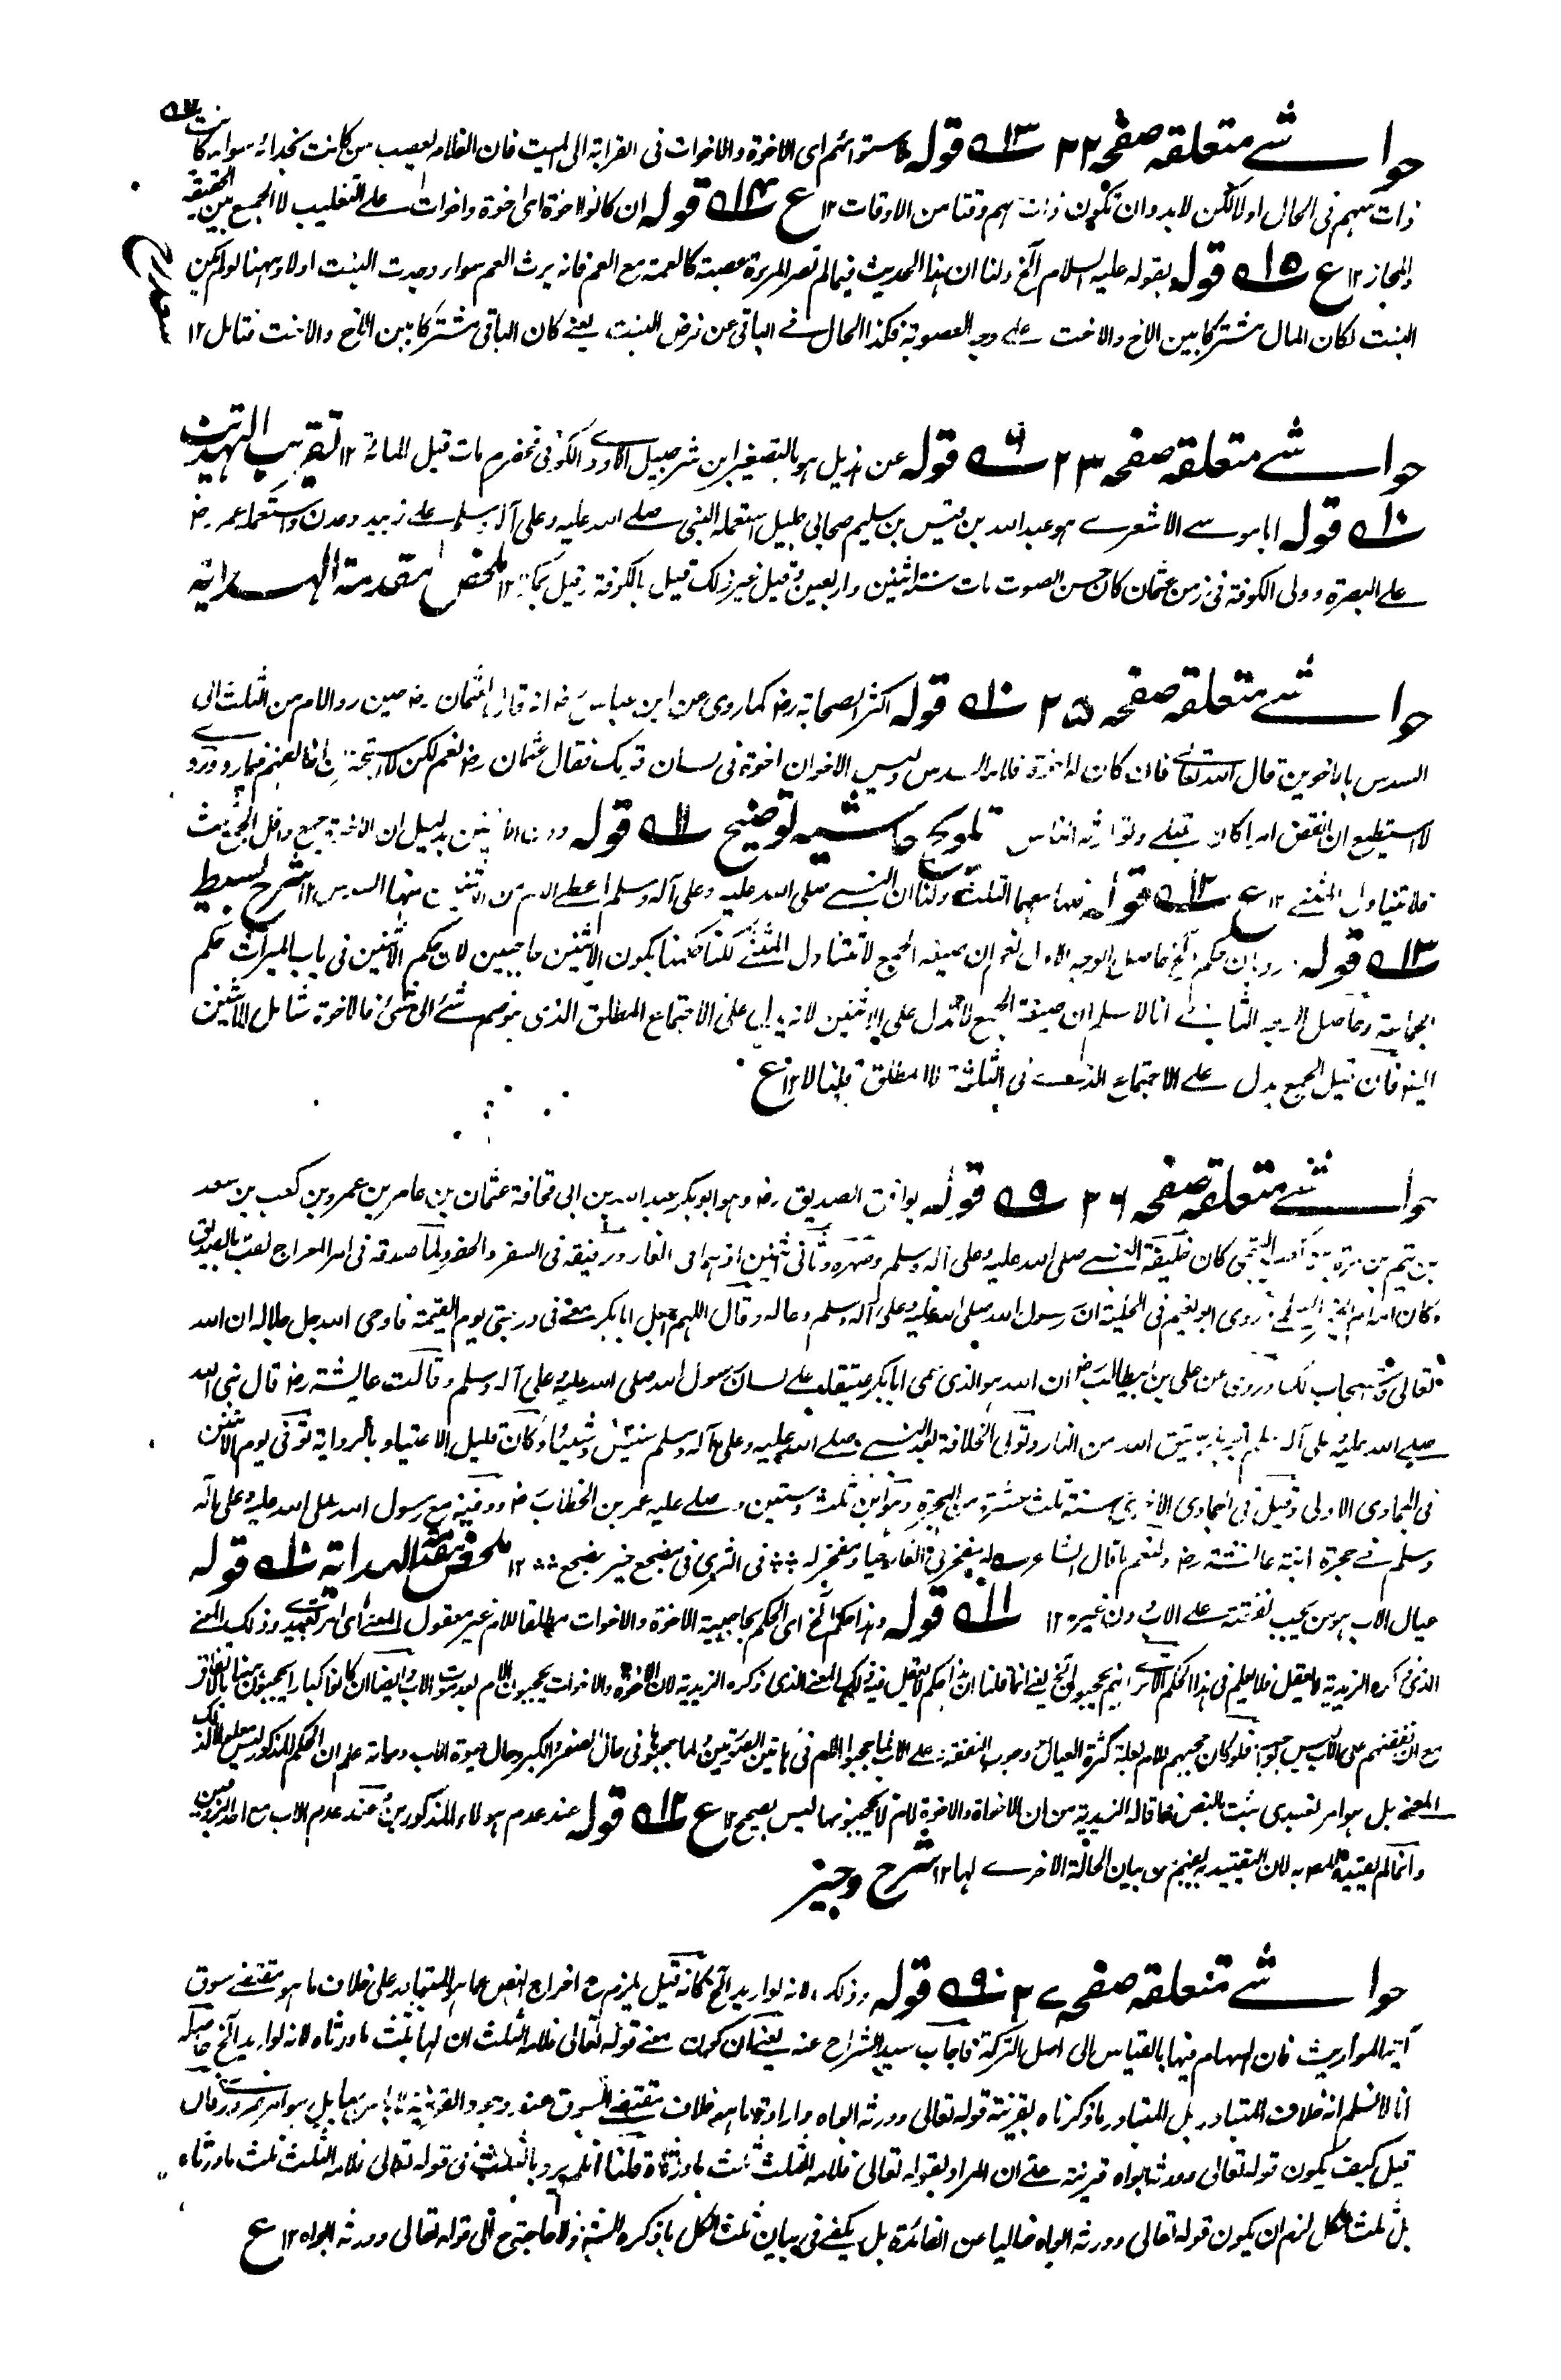 حواشے متعلقہ صفحہ ۲۲ ۱۳ قولہ لاستوائهم ای الاخوة والاخوات فی القرابة الی المیت فان الغلام یعصب من کانت بحذائه سواء کانت
ذات سهم فی الحال اولا لکن لابد وان تکون ذات سهم وقتا من الاوقات ۱۲ ع ۱۴ قولہ ان کانوا اخوة ای اخوة واخوات علی التغلیب لا الجمع بین الحقیقة
والمجاز ۱۲ ع ۱۵ قولہ بقوله علیه السلام الخ ولنا ان هذا الحدیث فیما لم تصر المرءة عصبة کالعمة مع العم فانه یرث العم سواء وجدت البنت اولا وههنا لو لم یکن
البنت لکان المال مشترکا بین الاخ والاخت علی وجه العصوبة فکذا الحال فی الباقی عن فرض البنت یعنے کان الباقی مشترکا بین الاخ والاخت فتامل ۱۲
حواشے متعلقہ صفحہ ۲۳ قولہ عن هزیل هو بالتصغیر ابن شرحبیل الاودی الکوفی مخضرم مات قبل المائة ۱۲ تقریب التهذیب
۱۰ قولہ ابا موسے الاشعرے هو عبدالله بن قیس بن سلیم صحابی جلیل استعمله النبی صلے الله علیه وعلی آله وسلم علے زبید وعدن واستعمله عمر رض
علے البصرة وولی الکوفة فی زمن عثمان کان حسن الصوت مات سنة اثنین واربعین وقیل غیر ذلک قیل بالکوفة وقیل بمکة ۱۲ ملخص مقدمة الهدایة
حواشے متعلقہ صفحہ ۲۵ ۱۰ قولہ اکثر الصحابة رض کما روی عن ابن عباس رض انه قال لعثمان رض حین رد الام من الثلث الی
السدس بالاخوین قال الله تعالے فان کان له اخوة فلامه السدس ولیس الاخوان اخوة فی لسان قومک فقال عثمان رض نعم لکن لا استطیع ان انقض امرا کان قبلے وتوارثه الناس تلویح حاشیه توضیح ۱۱ قولہ بدلیل ان الاخوة جمع واقل الجمع ثلث
فلا تتناول المثنے ۱۲ ع ۱۲ قولہ فلها معهما الثلث ولنا ان النبے صلی الله علیه وعلی آله وسلم اعطے الام مع الاثنین منها السدس ۱۲ شرح بسیط
۱۳ قولہ حکم الخ حاصل الوجه الاول نعم ان صیغة الجمع لا تتناول المثنے لکنا حکمنا بکون الاثنین حاجبین لان حکم الاثنین فی باب المیراث حکم
الجماعة وحاصل الوجه الثانے انا لا نسلم ان صیغة الجمع لا تدل علی الاثنین لانه یدل علی الاجتماع المطلق الذی هو ضم شئے الی شئے فالاخوة شامل للاثنین
ایضا فان قیل الجمع یدل علی الاجتماع الذی فی الثلثة لا المطلق قلنا لا ۱۲ ع
حواشے متعلقہ صفحہ ۲۶ ۹ قولہ یوافق الصدیق رض وهو ابو بکر عبدالله بن ابی قحافة عثمان بن عامر بن عمرو بن کعب بن سعد
بن تیم بن مرة التیمی کان خلیفة النبے صلی الله علیه وعلی آله وسلم وصهره وثانی اثنین اذ هما فی الغار ورفیقه فی السفر والحضر ولما صدقه فی امر المعراج لقب بالصدیق
وکان روی ابو نعیم فی الحلیة ان رسول الله صلی الله علیه وعلی آله وسلم دعا له وقال اللهم اجعل ابابکر معے فی درجتی یوم القیمة فاوحی الله جل جلاله ان الله
تعالی قد استجاب لک وروی عن علی بن ابیطالب رض ان الله هو الذی سمی ابابکر صدیقا علے لسان رسول الله صلی الله علیه وعلی آله وسلم وقالت عایشة رض قال نبی الله
صلے الله علیه وعلی آله وسلم عتیق الله من النار وتولی الخلافة بعد النبے صلے الله علیه وعلی آله وسلم سنتین وشیئا وکان قلیل الاعتیاد بالروایة توفی یوم الاثنین
فی الجمادی الاولی وقیل فی الجمادی الاخری سنة ثلث عشرة من الهجرة وهو ابن ثلث وستین وصلے علیه عمر بن الخطاب رض ودفنه مع رسول الله صلی الله علیه وعلی آله
وسلم فے حجرة ابنته عائشة رض ولنعم ما قال الشاعر فی الثری فی مضجع خیر مضجع ۱۲ ملخص مقدمة الهدایة ۱۰ قولہ
عیال الاب هو من یجب نفقته علے الاب دون غیره ۱۲ ۱۱ قولہ وهذا حکم الخ ای الحکم بحاجبیة الاخوة والاخوات مطلقا للام غیر معقول المعنے ای امر تعبدی وذلک المعنے
الذی ذکره الزیدیة لا یعقل فلا یعلم فی هذا الحکم الا تری انهم یحجبون الخ یعنے انما قلنا ان هذا حکم لا یعقل فیه ذلک المعنے الذی ذکره الزیدیة لان الاخوة والاخوات یحجبون الام بعد موت الاب وایضا ان کانوا کبارا یحجبون
مع ان نفقتهم علی الاب لیس بواجب فلو کان حجبهم للام لعلة کثرة العیال ووجوب النفقة علے الاب لما یحجبوا الام فی هاتین الصورتین ولما حجبوها فی حال الصغر والکبر وحال حیوة الاب ومماته علم ان الحکم المذکور لیس معلل لذلک
المعنے بل هو امر تعبدی ثبت بالنص فما قاله الزیدیة من ان الاخوات والاخوة لام لا یحجبونها لیس بصحیح ۱۲ ع ۱۲ قولہ عند عدم هولاء المذکورین عند عدم الاب مع احد الزوجین
وانما لم یقیده المصنف به لان التقیید به یفهم من بیان الحالة الاخرے لها ۱۲ شرح وجیز
حواشے متعلقہ صفحہ ۲۷ ۹ قولہ وذلک لانه لو ارید الخ کانه قیل یلزم ح اخراج النص عما هو المتبادر علی خلاف ما هو مقتضے سوق
آیة المواریث فان السهام فیها بالقیاس الی اصل الترکة فاجاب سید الشراح عنه یعنے ان کون معنے قوله تعالی فلامه الثلث ان لها ثلث ما ورثاه لانه لو ارید الخ حاصله
انا لا نسلم انه خلاف المتبادر بل المتبادر ما ذکرناه بقرینة قوله تعالی وورثه ابواه وارادة ما هو خلاف مقتضے السوق عند وجود القرینة
قیل کیف یکون قوله تعالی وورثه ابواه قرینة علے ان المراد بقوله تعالی فلامه الثلث ثلث ما ورثاه قلنا لو لم یرد بالثلث فی قوله تعالی فلامه الثلث ثلث ما ورثاه
بل ثلث الکل لزم ان یکون قوله تعالی وورثه ابواه خالیا عن الفائدة بل یکفے فی بیان ثلث الکل ولا حاجة ح الی قوله تعالی وورثه ابواه ۱۲ ع